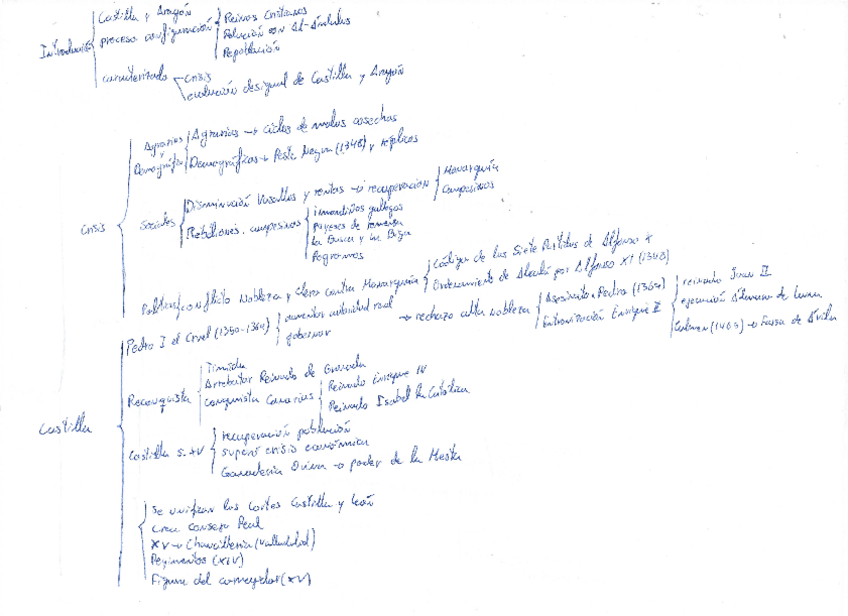 Introducción
Castilla y Aragón
proceso configuración
Reinos Cristianos
Relación con Al-Ándalus
Repoblación
caracterizado
crisis
evolución desigual de Castilla y Aragón
crisis
Agrarios
Demográfica
Agrarias → ciclos de malas cosechas
Demográficas → Peste Negra (1348) y réplicas
Sociales
Disminución Vasallos y rentas → recuperación
Monarquía
Campesinos
Rebeliones campesinos
irmandiños gallegos
payeses de remensa
La Busca y la Biga
Pogromos
Políticas
conflicto Nobleza y clero contra Monarquía
Código de las Siete Partidas de Alfonso X
Ordenamiento de Alcalá por Alfonso XI (1348)
Castilla
Pedro I el Cruel (1350-1369)
aumentar autoridad real
gobernar
→ rechazo alta nobleza
Asesinato Pedro (1369)
Entronización Enrique II
reinado Juan II
ejecución Álvaro de Luna
(1465) → Farsa de Ávila
Reconquista
Tímida
Arrebatar Reinado de Granada
conquista Canarias
Reinado Enrique IV
Reinado Isabel la Católica
Castilla s. XV
recuperación población
superó crisis económica
Ganadería Ovina → poder de la Mesta
Se unifican las Cortes Castilla y León
Crea Consejo Real
XV → Chancillería (Valladolid)
Regimientos (XIV)
Figura del corregidor (XV)